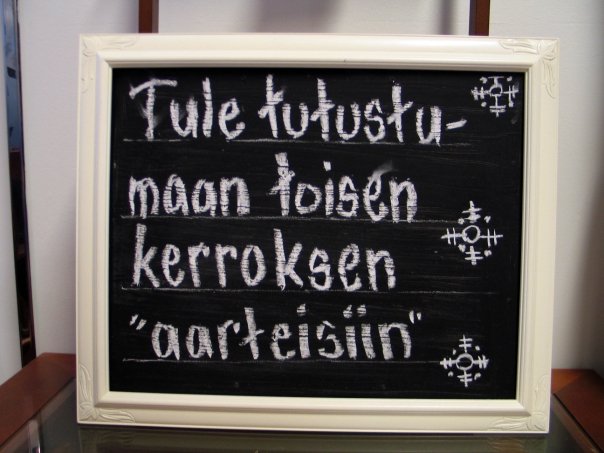 Tule tutustu-
maan toisen
kerroksen
"aarteisiin"